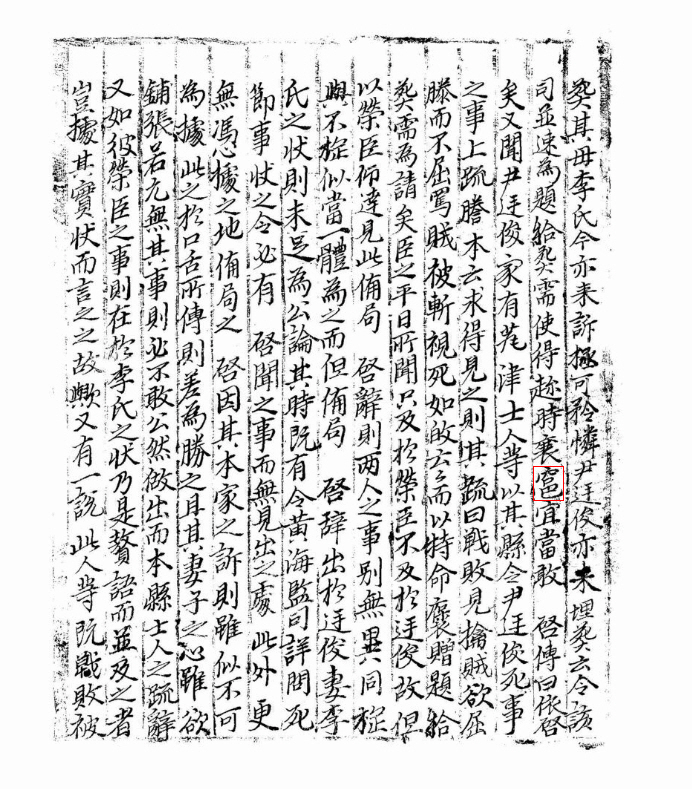 葬其母李氏今亦来訴極可矜憐尹廷俊亦未埋葬云令該
司並速為題給葬需使得趂時襄窆宜當敢 啓傳曰依啓
矣又聞尹廷俊家有津士人等以其縣令尹廷俊死事
之事上疏謄本云求得見之則其疏曰戰敗見擒賊欲屈
膝而不屈罵賊被斬視死如故云云而以特命褒贈題給
葬需為請矣臣之平日所聞只及於榮臣不及於廷俊故但
以榮臣仰達見此備局 啓辭則两人之事別無異同旌
與不旌似當一體為之而但備局 啓辞出於廷俊妻李
氏之状則未足為公論其時既有令黄海監司詳問死
節事状之令必有 啓聞之事而無見出之處 此外更
無憑據之地備局之 啓因其本家之訴則雖似不可
為據此之於口舌所傳則差為勝之且其妻子之心雖欲
鋪張若元無其事則必不敢公然做出而本縣士人之疏辭
又如彼榮臣之事則在於李氏之状乃是贅語而並及之者
豈據其實状而言之之故歟又有一說此人等既戰敗被